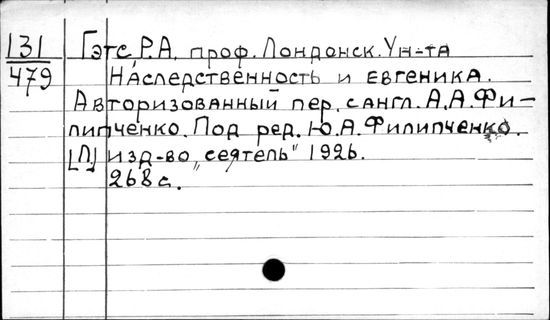 131 Гэтс, Р.А. проф. Лондонск. Ун-та
479 Наследственность и евгеника.
Авторизованный пер. с англ. А.А. Фи-
липченко. Под ред. Ю.А. Филипченко.
[Л] изд-во „сеятель" 1926.
268 с.